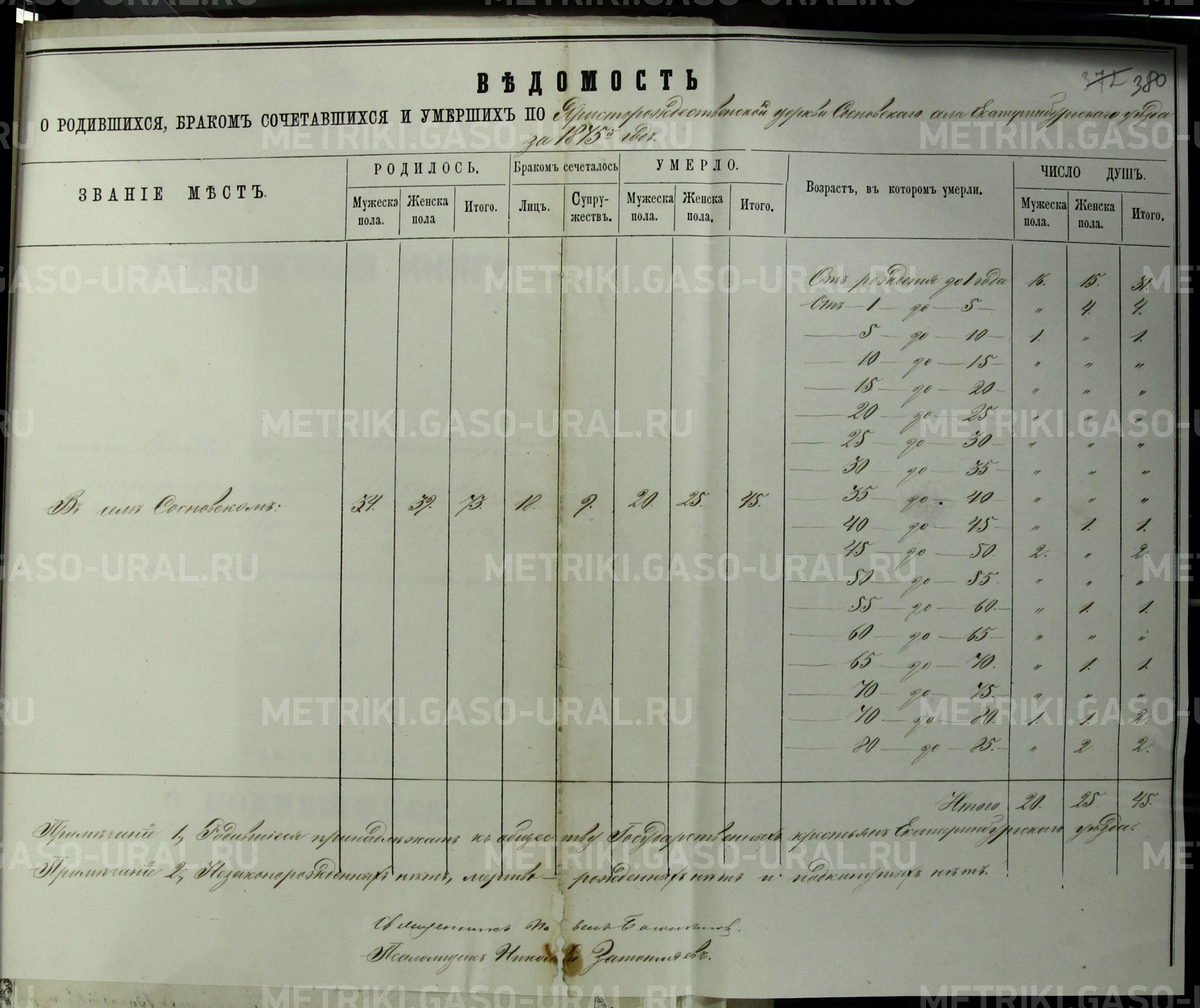 371 380
ВѢДОМОСТЬ
О РОДИВШИХСЯ, БРАКОМЪ СОЧЕТАВШИХСЯ И УМЕРШИХЪ ПО Христорождественской церкви Сосновскаго села Екатеринбургскаго уѣзда
за 1875й годъ.
ЗВАНІЕ МѢСТЪ. РОДИЛОСЬ. Бракомъ сочеталось УМЕРЛО. Возрастъ, въ которомъ умерли. ЧИСЛО ДУШЪ.
Мужеска пола. Женска пола Итого. Лицъ. Супружествъ. Мужеска пола. Женска пола. Итого. Мужеска пола. Женска пола. Итого.
Отъ рожденія до 1 года 16. 15. 31.
Отъ 1 до 5 " 4. 4.
5 до 10 1. " 1.
10 до 15 " " "
15 до 20 " " "
20 до 25 " " "
25 до 30 " " "
30 до 35 " " "
Въ селѣ Сосновскомъ: 34. 39. 73. 18. 9. 20. 25. 45. 35 до 40 " " "
40 до 45 " 1. 1.
45 до 50. 2. " 2.
50 до 55 " " "
55 до 60. " 1. 1.
60 до 65 " " "
65 до 70. " 1. 1.
70 до 75. " " "
70 до 80. 1. 1. 2.
80 до 85. " 2 2.
Итого 20. 25. 45.
Примѣчаніе 1, Родившіеся принадлежатъ къ обществу Государственныхъ крестьянъ Екатеринбургскаго уѣзда.
Примѣчаніе 2, Незаконорожденныхъ нѣтъ, мертво-рожденныхъ нѣтъ и подкинутыхъ нѣтъ.
Священникъ Павелъ
Псаломщикъ Николай
METRIKI.GASO-URAL.RU